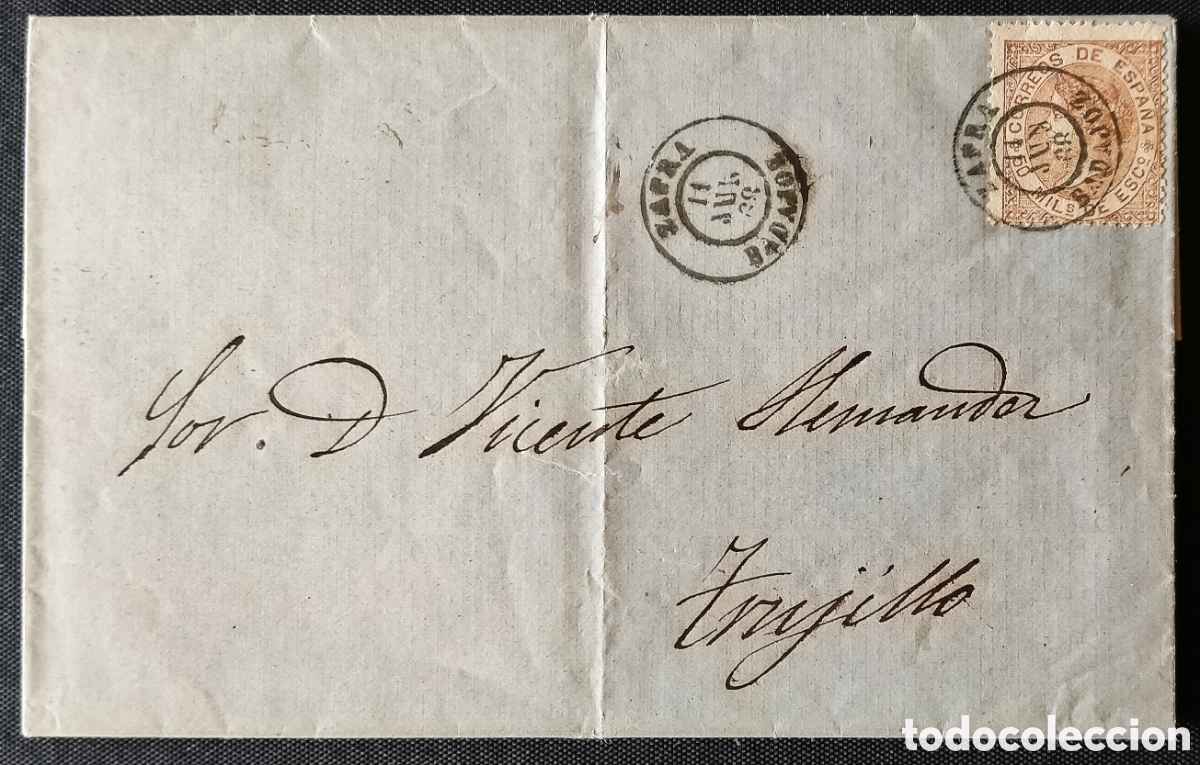 CORREOS DE ESPAÑA
50 MILS DE ESCO
ZAFRA
11
JUL
68
BADAJOZ
ZAFRA
JUL
68
BADAJOZ
Sor. D Vicente Hernandez
Trujillo
todocoleccion